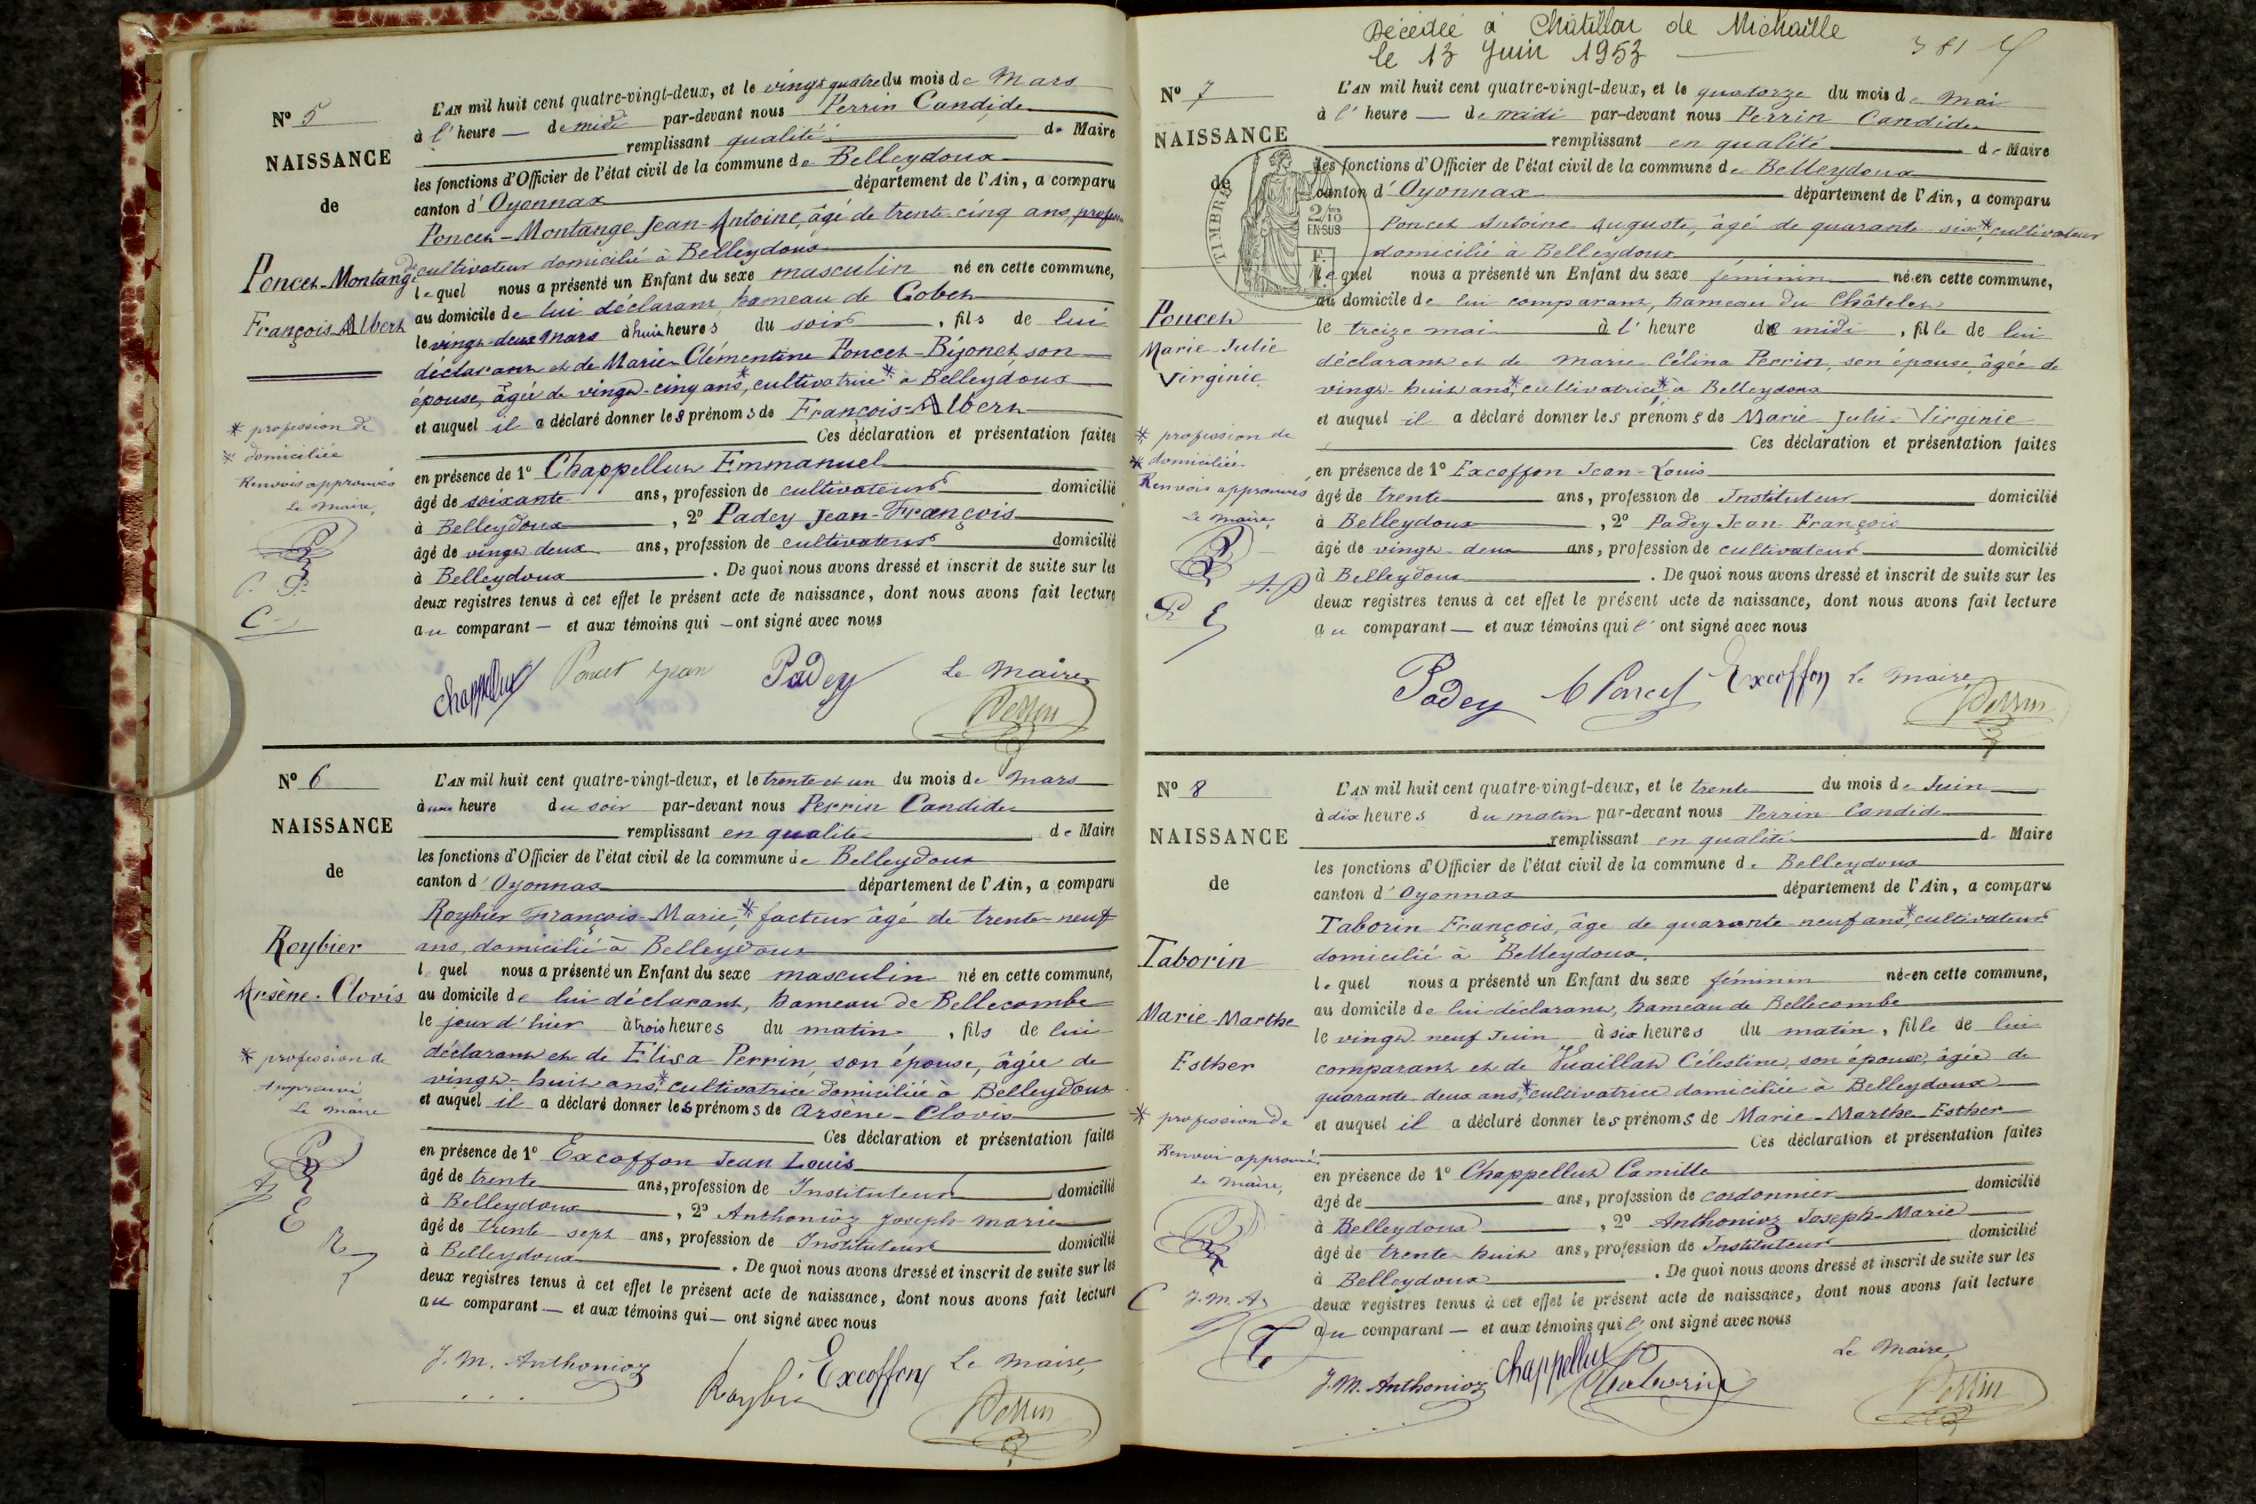 N° 5
NAISSANCE
de
Poncet-Montange
François Albert
* profession de
* domiciliée
Renvois approuvés
Le Maire,
L'AN mil huit cent quatre-vingt-deux, et le vingt quatre du mois de Mars
à l'heure — de midi par-devant nous Perrin Candide
remplissant qualité de Maire
les fonctions d'Officier de l'état civil de la commune de Belleydoux
canton d'Oyonnax département de l'Ain, a comparu
Poncet-Montange Jean-Antoine, âgé de trente-cinq ans, profession
de cultivateur domicilié à Belleydoux
lequel nous a présenté un Enfant du sexe masculin né en cette commune,
au domicile de lui déclarant, hameau de Gobet
le vingt-deux Mars à huit heures du soir, fils de lui
déclarant et de Marie Clémentine Poncet-Bijonet, son
épouse, âgée de vingt-cinq ans*, cultivatrice* à Belleydoux
et auquel il a déclaré donner les prénoms de François-Albert
Ces déclaration et présentation faites
en présence de 1° Chappelluz Emmanuel
âgé de soixante ans, profession de cultivateur domicilié
à Belleydoux, 2° Padey Jean-François
âgé de vingt deux ans, profession de cultivateur domicilié
à Belleydoux. De quoi nous avons dressé et inscrit de suite sur les
deux registres tenus à cet effet le présent acte de naissance, dont nous avons fait lecture
au comparant — et aux témoins qui — ont signé avec nous
Chappelluz Poncet Jean Padey Le Maire
Perrin
N° 6
NAISSANCE
de
Roybier
Arsène-Clovis
* profession de
Approuvé
Le Maire
L'AN mil huit cent quatre-vingt-deux, et le trente et un du mois de Mars
à une heure du soir par-devant nous Perrin Candide
remplissant en qualité de Maire
les fonctions d'Officier de l'état civil de la commune de Belleydoux
canton d'Oyonnax département de l'Ain, a comparu
Roybier François-Marie, * facteur âgé de trente-neuf
ans, domicilié à Belleydoux
lequel nous a présenté un Enfant du sexe masculin né en cette commune,
au domicile de lui déclarant, hameau de Bellecombe
le jour d'hier à trois heures du matin, fils de lui
déclarant et de Elisa Perrin, son épouse, âgée de
vingt-huit ans,* cultivatrice domiciliée à Belleydoux
et auquel il a déclaré donner les prénoms de Arsène-Clovis
Ces déclaration et présentation faites
en présence de 1° Excoffon Jean Louis
âgé de trente ans, profession de Instituteur domicilié
à Belleydoux, 2° Anthonioz Joseph Marie
âgé de trente sept ans, profession de Instituteur domicilié
à Belleydoux. De quoi nous avons dressé et inscrit de suite sur les
deux registres tenus à cet effet le présent acte de naissance, dont nous avons fait lecture
au comparant — et aux témoins qui — ont signé avec nous
J. M. Anthonioz Roybier Excoffon Le Maire,
Perrin
Décédée à Châtillon de Michaille
le 13 Juin 1953
N° 7
NAISSANCE
de
TIMBRE
2/10
EN SUS
Poncet
Marie-Julie
Virginie
* profession de
* domiciliée
Renvois approuvés
Le Maire,
A.P
L'AN mil huit cent quatre-vingt-deux, et le quatorze du mois de Mai
à l'heure — de midi par-devant nous Perrin Candide
remplissant en qualité de Maire
les fonctions d'Officier de l'état civil de la commune de Belleydoux
canton d'Oyonnax département de l'Ain, a comparu
Poncet Antoine Auguste, âgé de quarante six * cultivateur
domicilié à Belleydoux
lequel nous a présenté un Enfant du sexe féminin né en cette commune,
au domicile de lui comparant, hameau du Châtelet
le treize mai à l'heure de midi, fille de lui
déclarant et de Marie Célina Perrin, son épouse, âgée de
vingt-huit ans,* cultivatrice* à Belleydoux
et auquel il a déclaré donner les prénoms de Marie-Julie-Virginie
Ces déclaration et présentation faites
en présence de 1° Excoffon Jean-Louis
âgé de trente ans, profession de Instituteur domicilié
à Belleydoux, 2° Padey Jean François
âgé de vingt-deux ans, profession de cultivateur domicilié
à Belleydoux. De quoi nous avons dressé et inscrit de suite sur les
deux registres tenus à cet effet le présent acte de naissance, dont nous avons fait lecture
au comparant — et aux témoins qui l'ont signé avec nous
Padey Poncet Excoffon Le Maire
Perrin
N° 8
NAISSANCE
de
Taborin
Marie-Marthe
Esther
* profession de
Renvoi approuvé
Le Maire,
C J.M.A
L'AN mil huit cent quatre-vingt-deux, et le trente du mois de Juin
à dix heures du matin par-devant nous Perrin Candide
remplissant en qualité de Maire
les fonctions d'Officier de l'état civil de la commune de Belleydoux
canton d'Oyonnax département de l'Ain, a comparu
Taborin François, âgé de quarante neuf ans,* cultivateur
domicilié à Belleydoux.
lequel nous a présenté un Enfant du sexe féminin née en cette commune,
au domicile de lui déclarant, hameau de Bellecombe
le vingt-neuf Juin à six heures du matin, fille de lui
comparant et de Vuaillat Célestine, son épouse, âgée de
quarante-deux ans,* cultivatrice domiciliée à Belleydoux
et auquel il a déclaré donner les prénoms de Marie-Marthe-Esther
Ces déclaration et présentation faites
en présence de 1° Chappelluz Camille
âgé de ans, profession de cordonnier domicilié
à Belleydoux, 2° Anthonioz Joseph-Marie
âgé de trente-huit ans, profession de Instituteur domicilié
à Belleydoux. De quoi nous avons dressé et inscrit de suite sur les
deux registres tenus à cet effet le présent acte de naissance, dont nous avons fait lecture
au comparant — et aux témoins qui l'ont signé avec nous
J. M. Anthonioz Chappelluz Taborin Le Maire,
Perrin